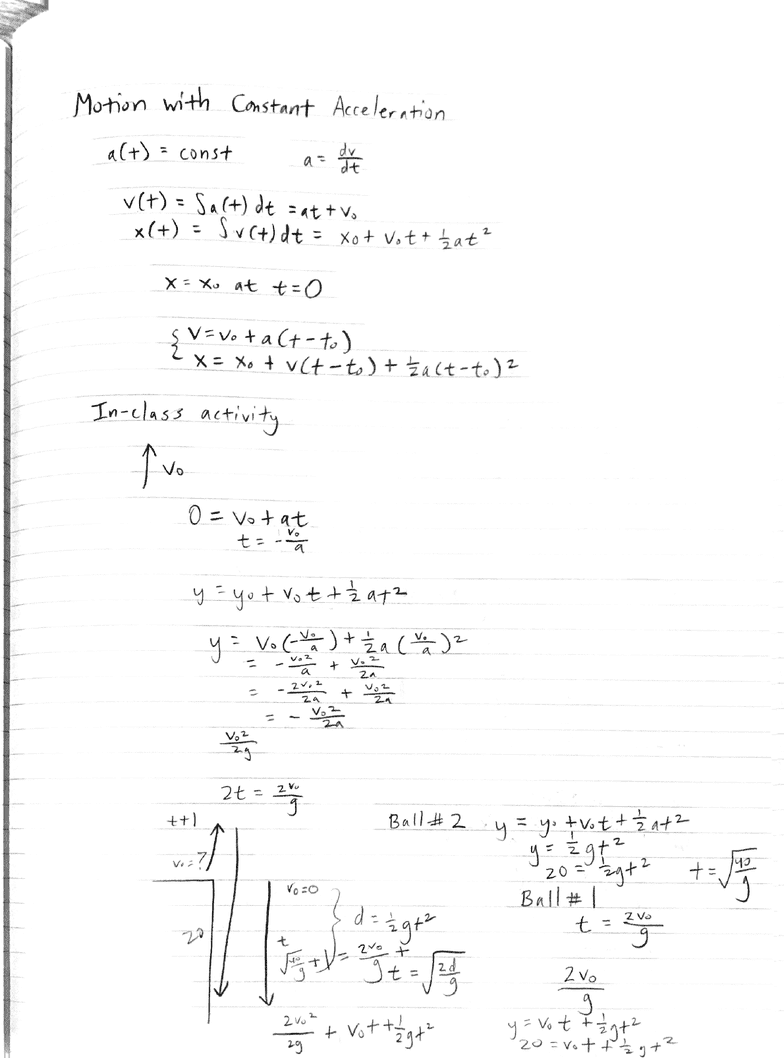 Motion with Constant Acceleration
a(t) = const    a = dv/dt
v(t) = ∫a(t) dt = at + v₀
x(t) = ∫v(t) dt = x₀ + v₀t + ½at²
x = x₀ at t = 0
{ v = v₀ + a(t-t₀)
x = x₀ + v(t-t₀) + ½a(t-t₀)²
In-class activity
↑ v₀
0 = v₀ + at
t = -v₀/a
y = y₀ + v₀t + ½at²
y = v₀(-v₀/a) + ½a(v₀/a)²
= -v₀²/a + v₀²/2a
= -2v₀²/2a + v₀²/2a
= -v₀²/2a
v₀²/2g
2t = 2v₀/g
t+1
v₀=?
20
v₀=0
t
d = ½gt²
√(40/g) + 1 = 2v₀/g +
t = √(2d/g)
2v₀²/2g + v₀t + ½gt²
Ball #2    y = y₀ + v₀t + ½at²
y = ½gt²
20 = ½gt²    t = √(40/g)
Ball #1
t = 2v₀/g
2v₀/g
y = v₀t + ½gt²
20 = v₀t + ½gt²